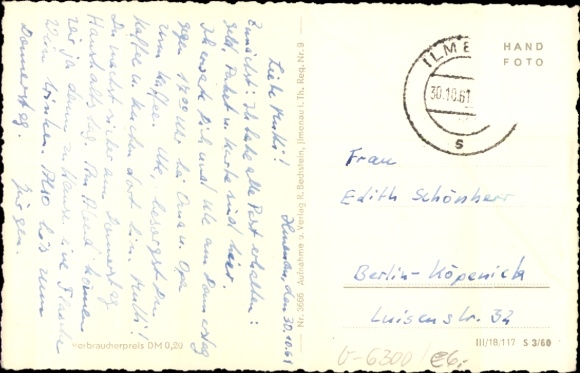 Ilmenau, den 30.10.61
Liebe Mutti!
Zunächst: Ich habe alle Post erhalten:
Geld, Paket u. Karte sind hier.
Ich erwarte Dich und Ute am Donnerstag
gegen 17.00 Uhr bei Oma u. Opa
zum Kaffee. Ute, besorgst den
Kaffee u. Kuchen dort hin. Mutti!
Du machst sicher am Donnerstag
Haushaltstag. Am Abend können
wir ja dann zu Hause eine Flasche
Wein trinken. Also bis zum
Donnerstag.
Jürgen.
Verbraucherpreis DM 0,20
Nr. 3666 Aufnahme u. Verlag R. Bechstein, Ilmenau i. Th. Reg. Nr. 9
ILME
30.10.61
s
HAND
FOTO
Frau
Edith Schönherr
Berlin-Köpenick
Luisenstr. 32
III/18/117 S 3/60
U-6300 / €6,-